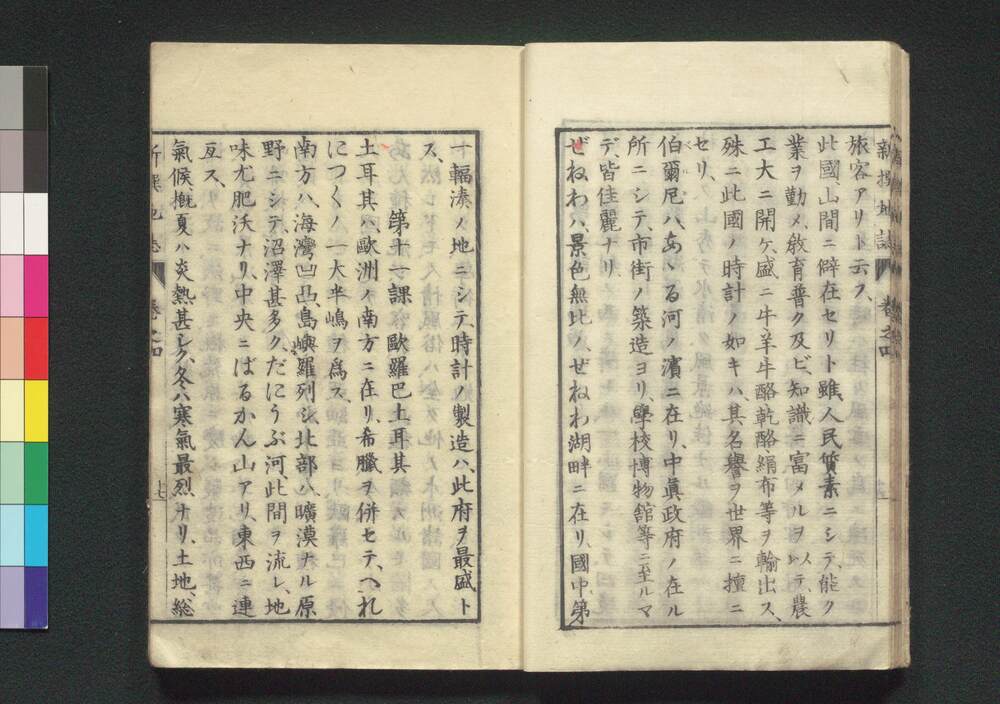 新撰地誌 卷之四
旅客アリト云フ、
此國山間ニ僻在セリト雖、人民質素ニシテ、能ク
業ヲ勤メ、敎育普ク及ビ、知識ニ富メルヲ以テ、農
工大ニ開ケ、盛ニ牛、羊、牛酪、乾酪、絹布等ヲ輸出ス、
殊ニ此國ノ時計ノ如キハ、其名譽ヲ世界ニ擅ニ
セリ、
伯爾尼ハ、あゝる河ノ濱ニ在リ、中眞政府ノ在ル
所ニシテ、市街ノ築造ヨリ、學校、博物館等ニ至ルマ
デ、皆佳麗ナリ、
ぜねわハ、景色無比ノぜねわ湖畔ニ在リ、國中第
一輻湊ノ地ニシテ、時計ノ製造ハ、此府ヲ最盛ト
ス、
第十一課 歐羅巴土耳其
土耳其ハ、歐洲ノ南方ニ在リ、希臘ヲ併セテ、へれ
にっくノ一大半嶋ヲ爲ス、
南方ハ、海灣凹凸、島嶼羅列シ、北部ハ、曠漠ナル原
野ニシテ、沼澤甚多ク、だにうぶ河此間ヲ流レ、地
味尤肥沃ナリ、中央ニばるかん山アリ、東西ニ連
亙ス、
氣候槪夏ハ炎熱甚シク、冬ハ寒氣最烈ナリ、土地、総
新撰地誌 卷之四 十七